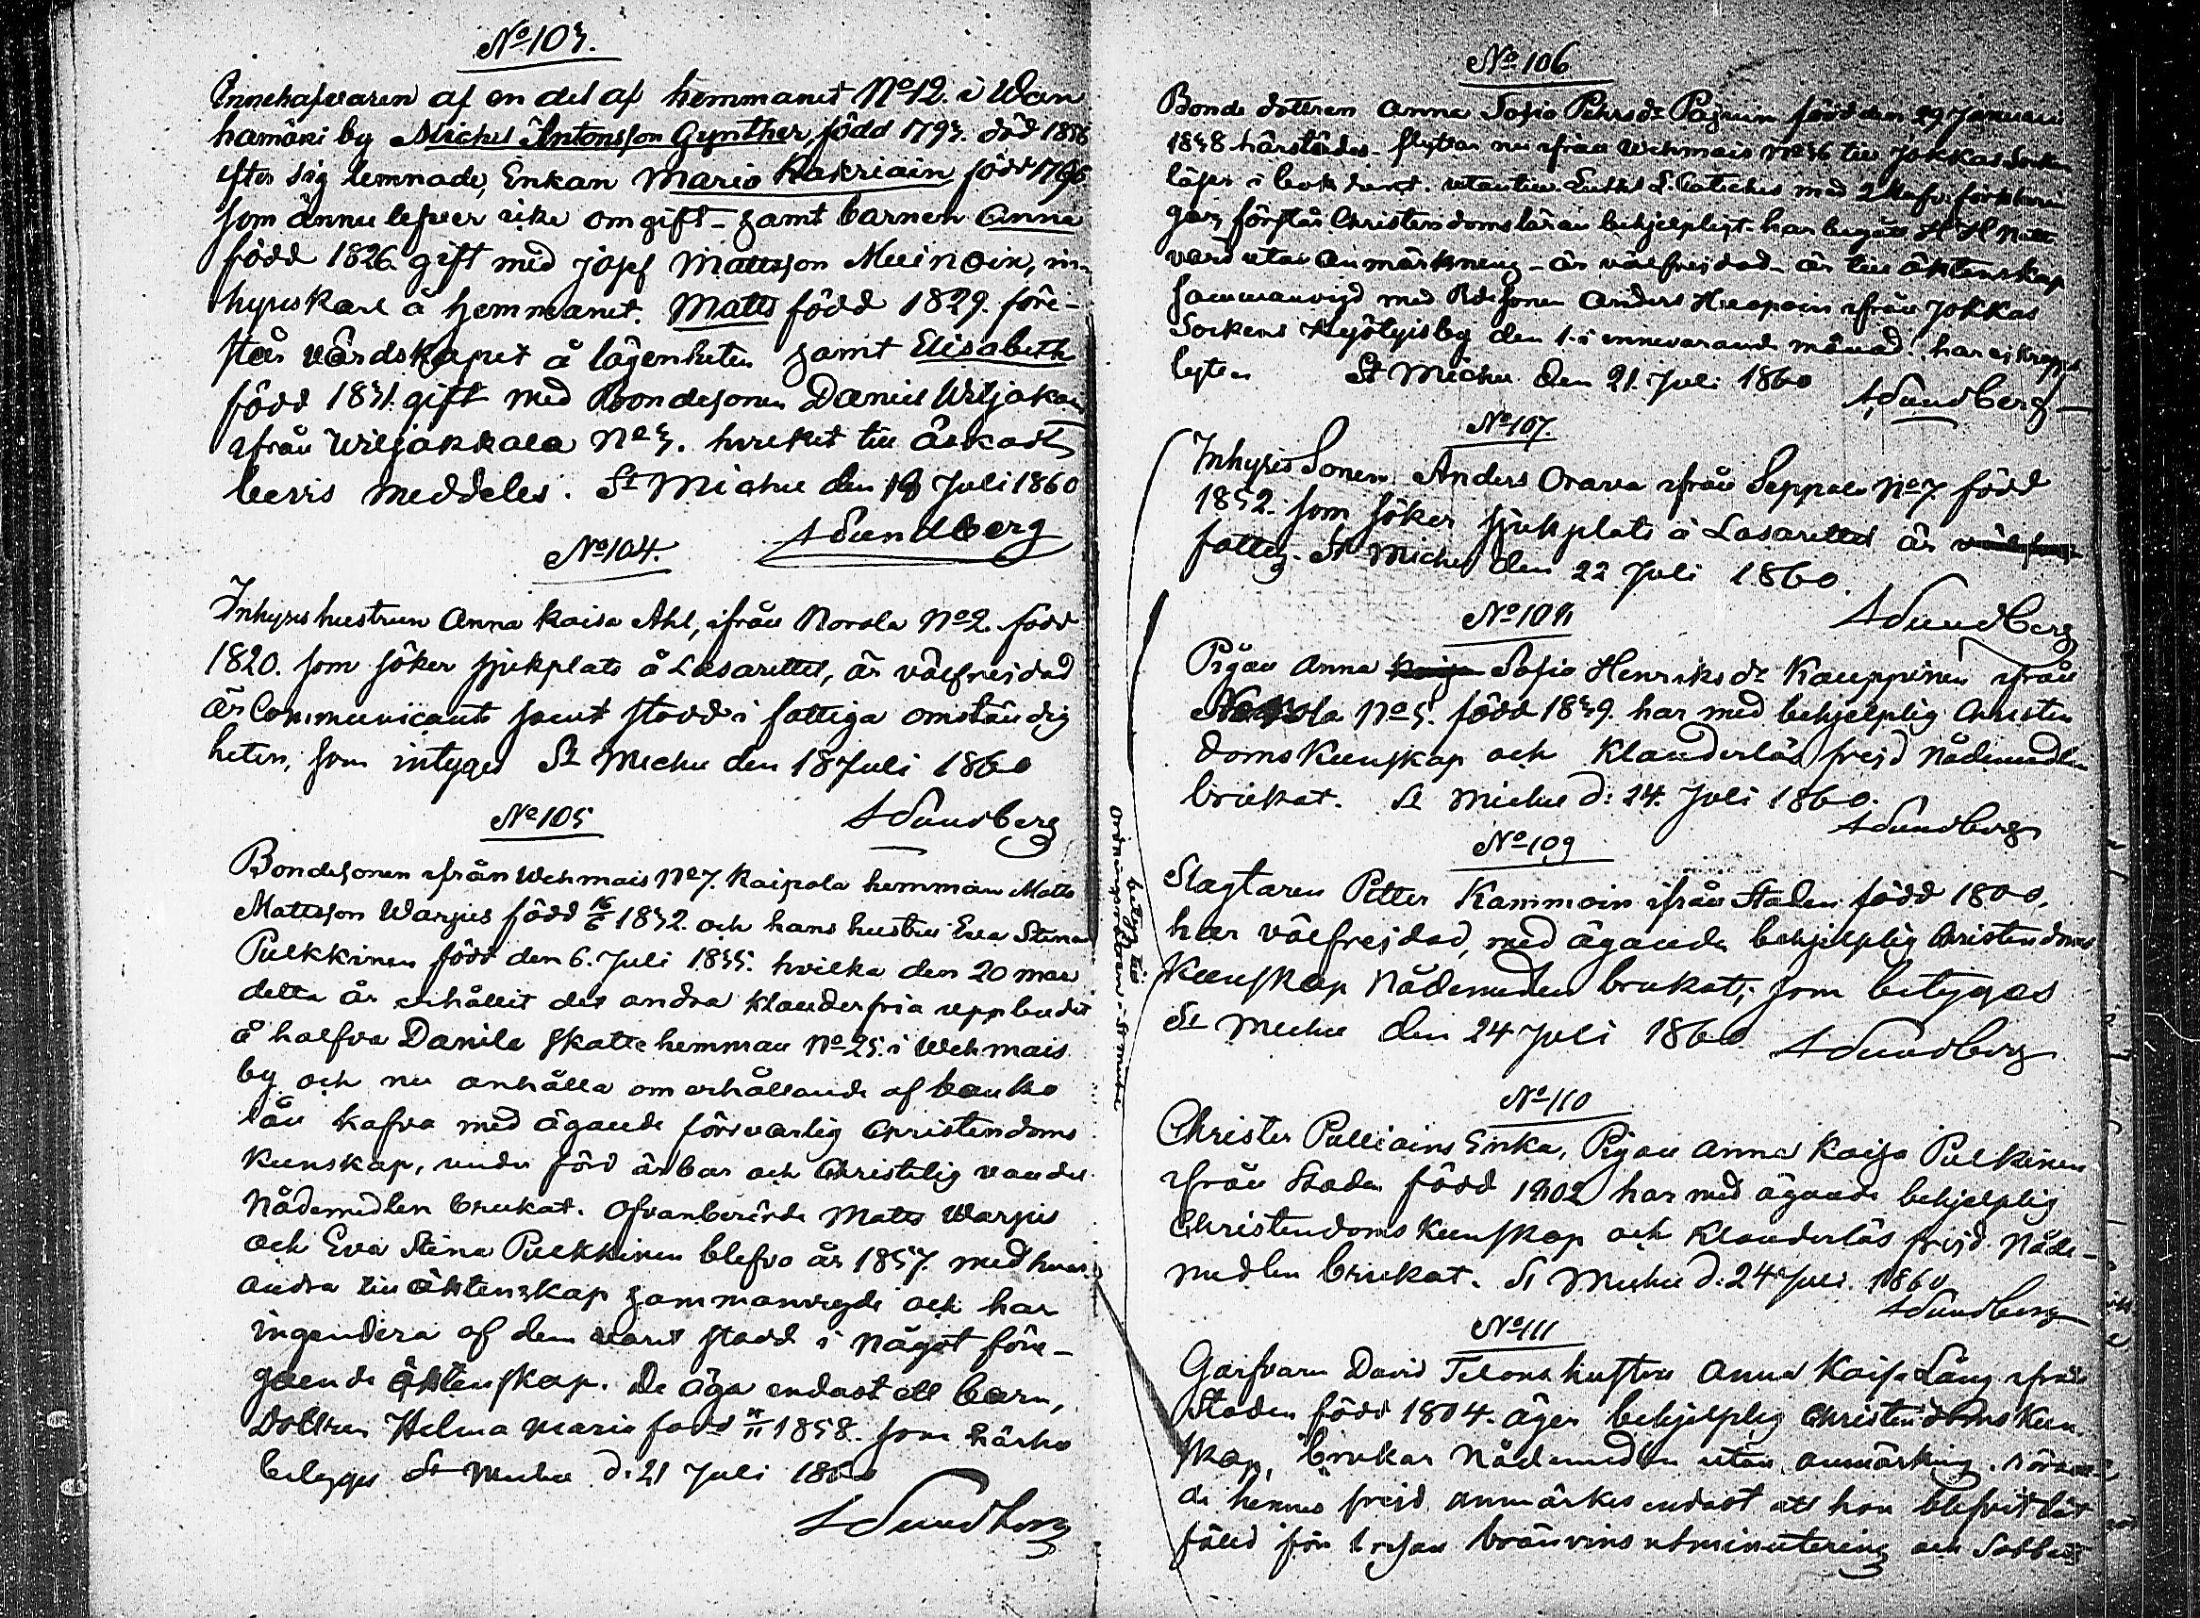 No 103.
Innehafvaren af en del af hemmanet No 12. i Wan
hamäki by Michel Antonsson Gynther, född 1793. död 1856
efter sig lemnade, Enkan Maria Kakriain född 1796
som ännu lefver icke omgift - samt barnen Anna
född 1826 gift med Josef Mattsson Muinoin, in-
hyseskarl å hemmanet. Matts född 1829. före-
står vårdskapet å lägenheten samt Elisabeth
född 1831. gift med Bondesonen Daniel Wiljakain
ifrån Wiljakkala No 3. hvilket till åskadt
bevis meddeles. St Michel den 18 Juli 1860
ASundberg
No 104.
Inhyses hustrun Anna Kaisa Ahl, ifrån Norola No 2. född
1820. som söker sjukplats å Lasarettet, är välfrejdad
är Communicant samt stadd i fattiga omständig
heter, som intygas St Michel den 18 Juli 1860
ASundberg
No 105
Bondesonen ifrån Wehmais No 7. Kaipola hemman Matts
Mattsson Warpus född 16/6 1832. och hans hustru Eva Stina
Pulkkinen född den 6. Juli 1835. hvilka den 20 mars
detta år erhållit det andra klanderfria uppbudet
å halfva Danila skatte hemman No 25. i Wehmais
by och nu anhålla om erhållande af banko
lån hafva med ägande försvarlig Christendoms
kunskap, under förd ärbar och Christelig vandel
Nådemedlen brukat. Ofvanberörde Matts Warpus
och Eva Stina Pulkkinen blefvo år 1857. med hvar
andra till äktenskap sammanvigde och har
ingendera af dem varit stadd i något före-
gående äktenskap. De äga endast ett barn,
Dottren Helena Maria född /11 1858. som härho
betygges St Michel d. 21 Juli 1860
ASundberg
No 106
Bonde dottren Anna Sofia Pehrsdr född den 29 Januari
1838 härstädes - flyttar nu ifrån Wehmais No 36 till Jokkas Socken
läser i bok utantill Luthers L. Catiches med 2 förklarin
gar, förstår Christendomsläran behjelpligt - har begått H H Natt
vard utan anmärkning - är välfrejdad - är till äktenskap
sammanvigd med Bdesonen Anders Haapain ifrån Jokkas
Sockens by den 1. i innevarande månad. har ej
lyte. St Michel den 21. Juli 1860
ASundberg
No 107.
Inhyses Sonen Anders Orava ifrån Seppala No 7. född
1852. som söker sjukplats å Lasarettet är
fattig. St Michel den 22 Juli 1860.
ASundberg
No 108
Pigan Anna Kaisa Sofia Henriksdr Kauppinen ifrån
No 5. född 1839. har med behjelplig Christen
doms kunskap och klanderlös frejd Nådemedlen
brukat. St Michel d: 24. Juli 1860.
ASundberg
No 109
Slagtaren Petter Kammoin ifrån Staden född 1800,
har välfrejdad, med ägande behjelplig Christendoms
kunskap Nådemedlen brukat; som betygas
St Michel den 24 Juli 1860
ASundberg
No 110
Christer Pulliains Enka, Pigan Anna Kaisa Pulkinen
ifrån Staden född 1802 har med ägande behjelplig
Christendoms kunskap och klanderlös frejd Nåde-
medlen brukat. St Michel d. 24 Juli. 1860
ASundberg
No 111
Garfvaren David Telons hustru Anna Kaisa Lång ifrån
Staden född 1804. äger behjelplig Christendoms kun
skap, brukar Nådemedlen utan anmärkning. rörande
de hennes frejd anmärkes endast att hon blefvit
fälld för bränvins utminutering och Sabbats